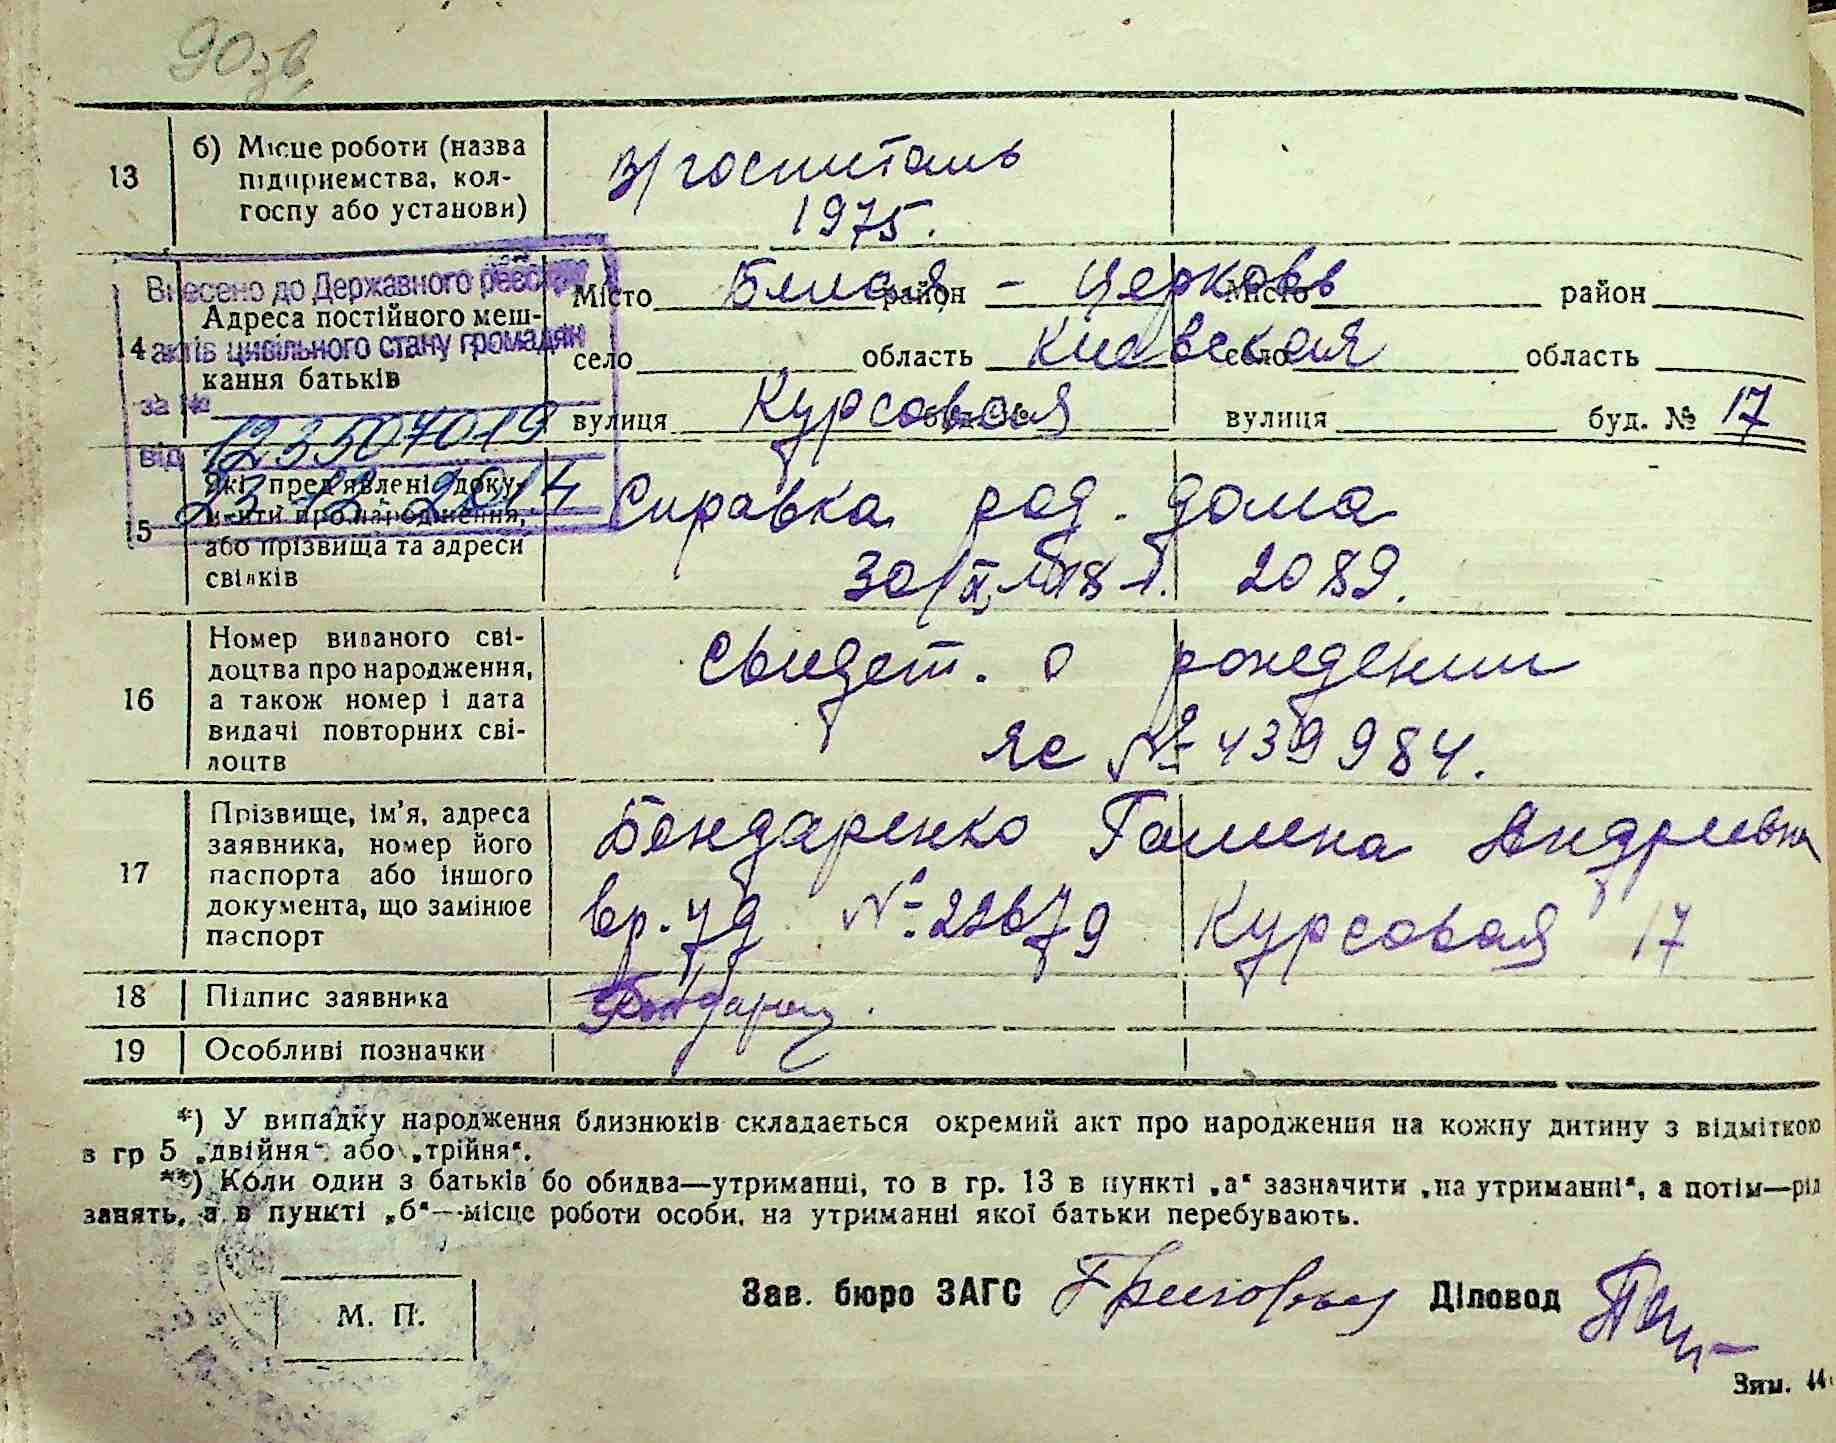 90зв.
13
б) Місце роботи (назва
підприємства, кол-
госпу або установи)
в/госпиталь
1975.
Внесено до Державного реєстру
актів цивільного стану громадян
за № 123507019
від
14
Адреса постійного меш-
кання батьків
Місто Белая - Церковь район
село область Киевская
вулиця Курсовая буд. №
Місто район
село область
вулиця буд. № 17
15
Які пред'явлені доку-
менти про народження,
або прізвища та адреси
свідків
Справка род. дома
2089.
16
Номер виданого сві-
доцтва про народження,
а також номер і дата
видачі повторних сві-
доцтв
Свидет. о рождении
ЯС № 439984.
17
Прізвище, ім'я, адреса
заявника, номер його
паспорта або іншого
документа, що замінює
паспорт
Бондаренко Галина Андреевна
вр. уд № 22679 Курсовая 17
18
Підпис заявника
19
Особливі позначки
*) У випадку народження близнюків складається окремий акт про народження на кожну дитину з відміткою
в гр 5 „двійня“ або „трійня“.
**) Коли один з батьків бо обидва—утриманці, то в гр. 13 в пункті „а“ зазначити „на утриманні“, а потім—рід
занять, а в пункті „б“—місце роботи особи, на утриманні якої батьки перебувають.
М. П.
Зав. бюро ЗАГС
Діловод
Зам. 44